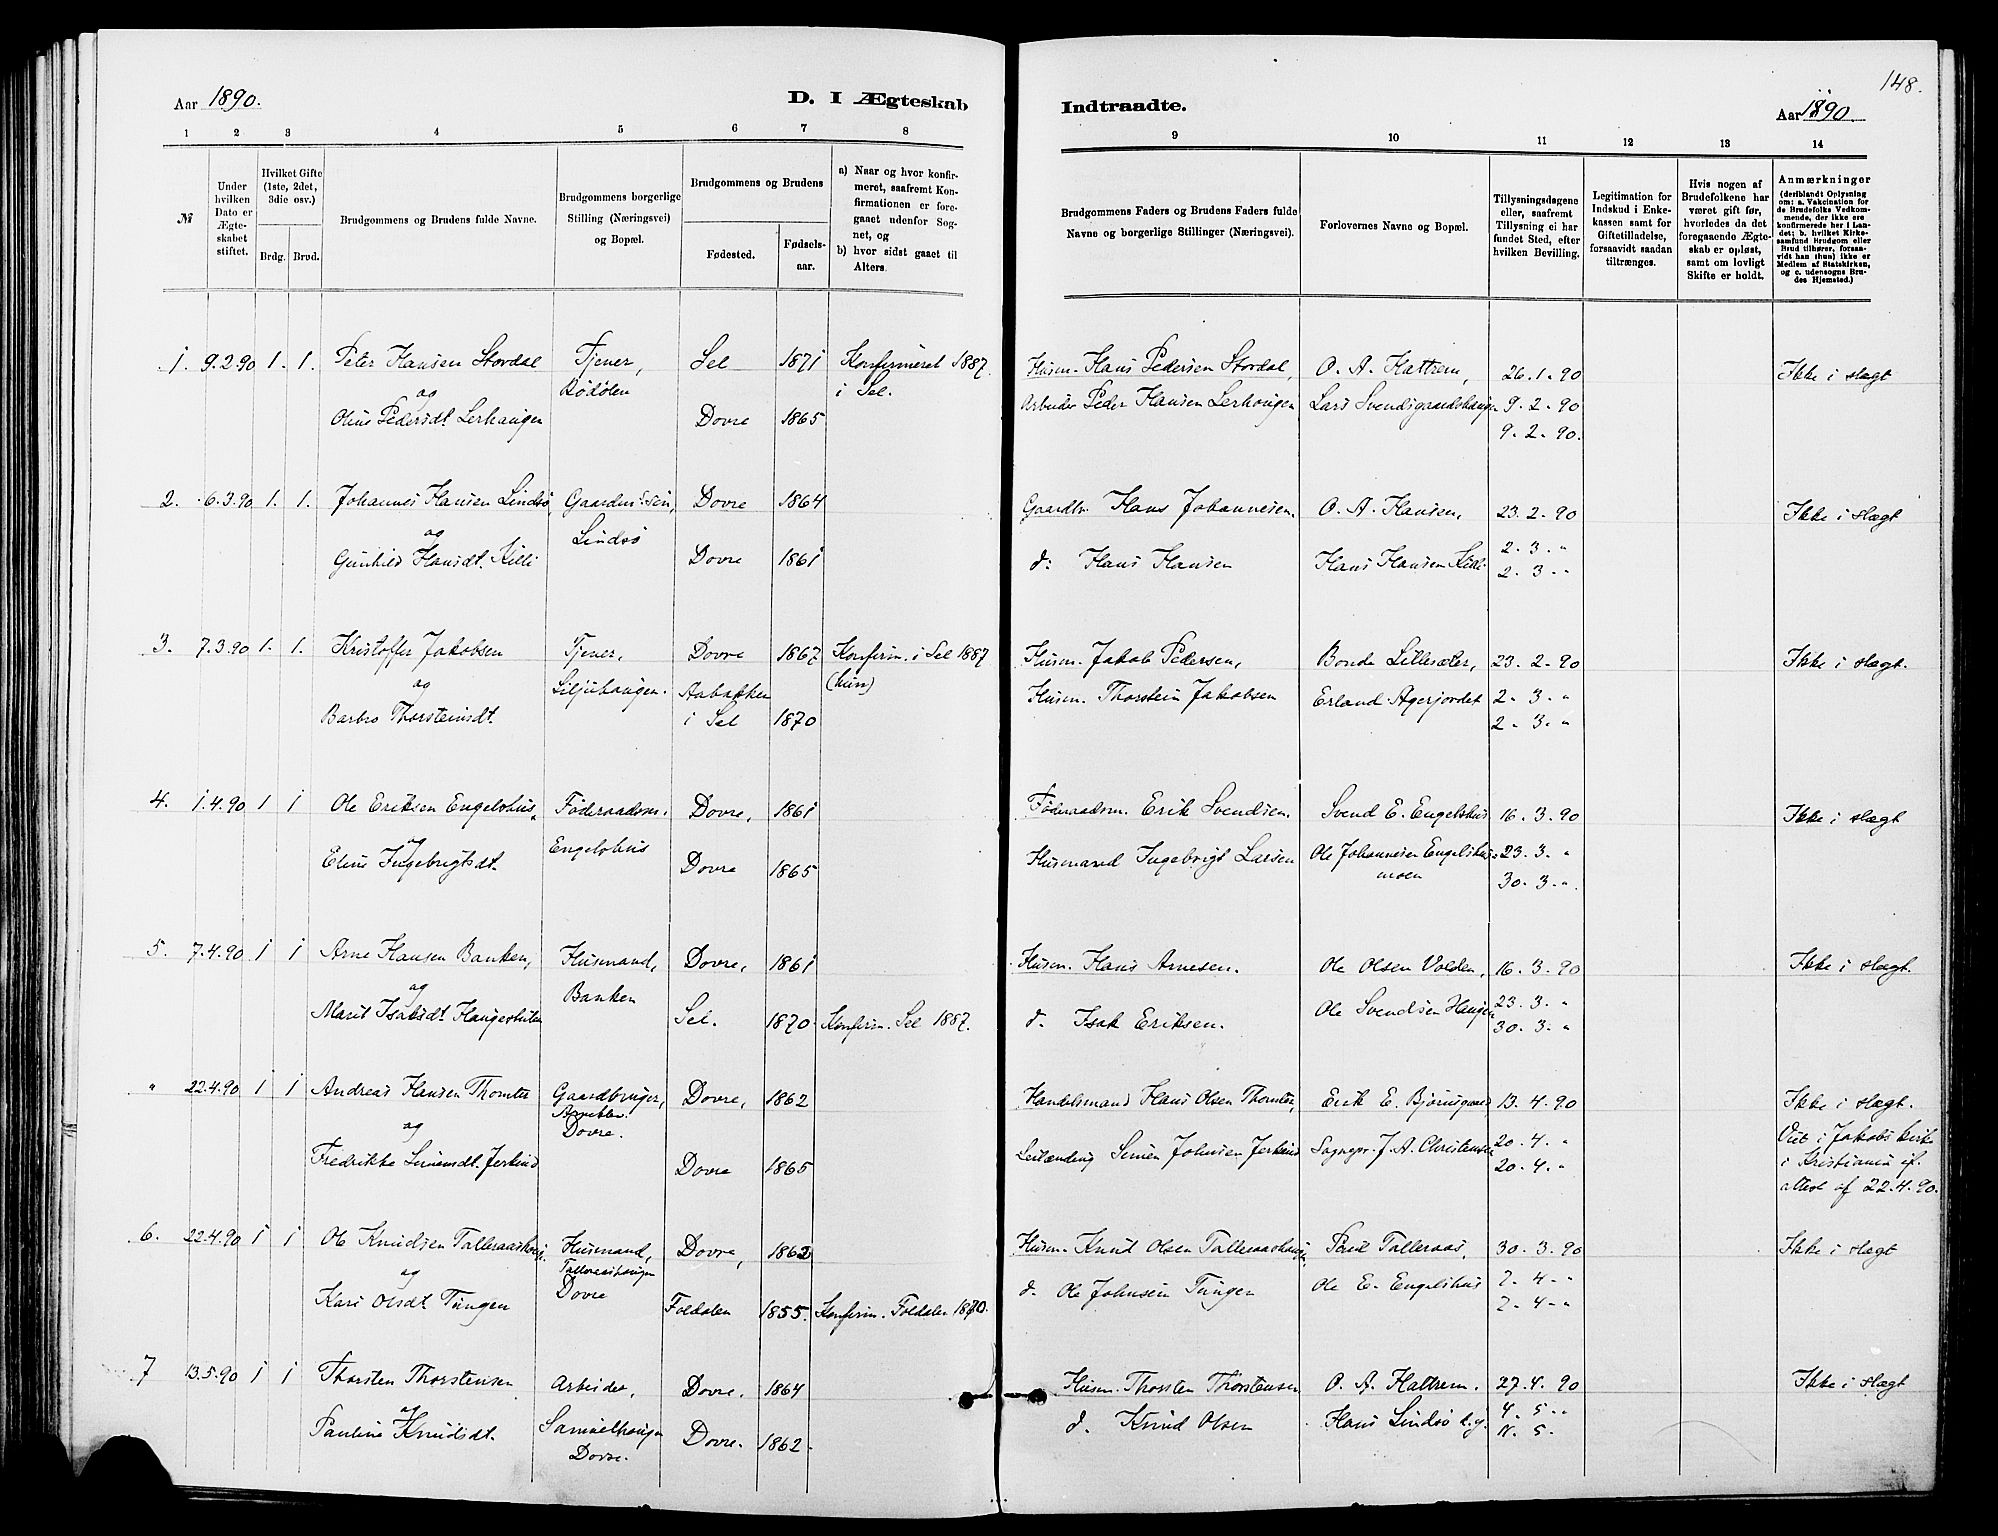 148.
Aar 1890.
D. I Ægteskab
Indtraadte.
Aar 1890.
1 2 3 4 5 6 7 8
9 10 11 12 13 14
№
Under hvilken Dato er Ægteskabet stiftet.
Hvilket Gifte (1ste, 2det, 3die osv.)
Brdg. Brud.
Brudgommens og Brudens fulde Navne.
Brudgommens borgerlige Stilling (Næringsvei) og Bopæl.
Brudgommens og Brudens
Fødested.
Fødselsaar.
a) Naar og hvor konfirmeret, saafremt Konfirmationen er foregaaet udenfor Sognet, og
b) hvor sidst gaaet til Alters.
Brudgommens Faders og Brudens Faders fulde Navne og borgerlige Stillinger (Næringsvei).
Forlovernes Navne og Bopæl.
Tillysningsdagene eller, saafremt Tillysning ei har fundet Sted, efter hvilken Bevilling.
Legitimation for Indskud i Enkekassen samt for Giftetilladelse, forsaavidt saadan tiltrænges.
Hvis nogen af Brudefolkene har været gift før, hvorledes da det foregaaende Ægteskab er opløst, samt om lovligt Skifte er holdt.
Anmærkninger (deriblandt Oplysning om: a. Vakcination for de Brudefolks Vedkommende, der ikke ere konfirmerede her i Landet; b. hvilket Kirkesamfund Brudgom eller Brud tilhører, forsaavidt han (hun) ikke er Medlem af Statskirken, og c. udensogns Brudes Hjemsted.)
1. 9.2.90 1. 1. Peter Hansen Stordal Tjener, Sel 1871 Konfirmeret 1887 Husm. Hans Pedersen Stordal, O. A. Hattrem, 26.1.90 Ikke i slægt
og Bødølen i Sel.
Oline Pedersdt. Lerhaugen Dovre 1865 Arbeider Peder Hansen Lerhougen Lars Svendsgaardshaugen 9.2.90
9.2.90.
2. 6.3.90 1. 1. Johannes Hansen Lindsø, Gaardm. Søn, Dovre 1864 Gaardbr. Hans Johannesen. O. A. Hansen, 23.2.90 Ikke i slægt
og Lindsø
Gunhild Hansdt. Killi Dovre 1861 d: Hans Hansen Hans Hansen Killi. 2.3. "
2.3. "
3. 7.3.90 1. 1. Kristoffer Jakobsen Tjener, Dovre 1867 Konfirm. i Sel 1887 Husm. Jakob Pedersen, Bonde Lillesæter, 23.2.90 Ikke i slægt.
og Liljuhaugen. Aabakken (hun) Husm. Thorstein Jakobsen Erland Agerjordet 2.3. "
Barbro Thorsteinsdt. i Sel 1870 2.3. "
4. 1.4.90 1 1 Ole Eriksen Engelshus, Føderaadsm. Dovre, 1861 Føderaadsm. Erik Svendsen. Svend E. Engelshus 16.3.90 Ikke i slægt
og Engelshus
Eline Ingebrigtsdt. Dovre 1865 Husmand Ingebrigt Larsen Ole Johannesen Engelshus- 23.3. "
moen 30.3. "
5. 7.4.90 1 1 Arne Hansen Banken, Husmand, Dovre, 1861 Husm. Hans Arnesen. Ole Olsen Volden, 16.3.90 Ikke i slægt.
og Banken
Marit Isaksdt. Haugesteten Sel. 1870. Konfirm. Sel 1887. d. Isak Eriksen. Ole Svendsen Haugen 23.3. "
30.3. "
" 22.4.90 1 1 Andreas Hansen Thomter Gaardbruger, Dovre, 1862 Handelsmand Hans Olsen Thomter, Erik E. Bjørnsgaard 13.4.90 Ikke i slægt.
og Dovre. Viet i Jakobs Kirke
Fredrikke Simensdt. Jerkind Dovre 1865 Leilænding Simen Johnsen Jerkind Sognepr. J. A. Christensen 20.4. " i Kristiania if.
20.4. " attest af 22.4.90.
6. 22.4.90 1 1 Ole Knudsen Talleraashaug. Husmand, Dovre, 1862 Husm. Knud Olsen Talleraashaugen Poul Talleraas, 30.3.90 Ikke i slægt
og Talleraashaugen Dovre
Kari Olsdt. Tungen Foldalen 1855. Konfirm. Foldalen 1870. d. Ole Johnsen Tungen Ole E. Engelshus 2.4. "
2.4. "
7 13.5.90 1 1 Thorsten Thorstensen Arbeider, Dovre, 1864 Husm. Thorsten Thorstensen O. A. Hattrem. 27.4.90 Ikke i slægt
og Samuelhaugen
Pauline Knudsdt. Dovre. Dovre. 1862. d. Knud Olsen Hans Lindsø d.y. 4.5. "
11.5.